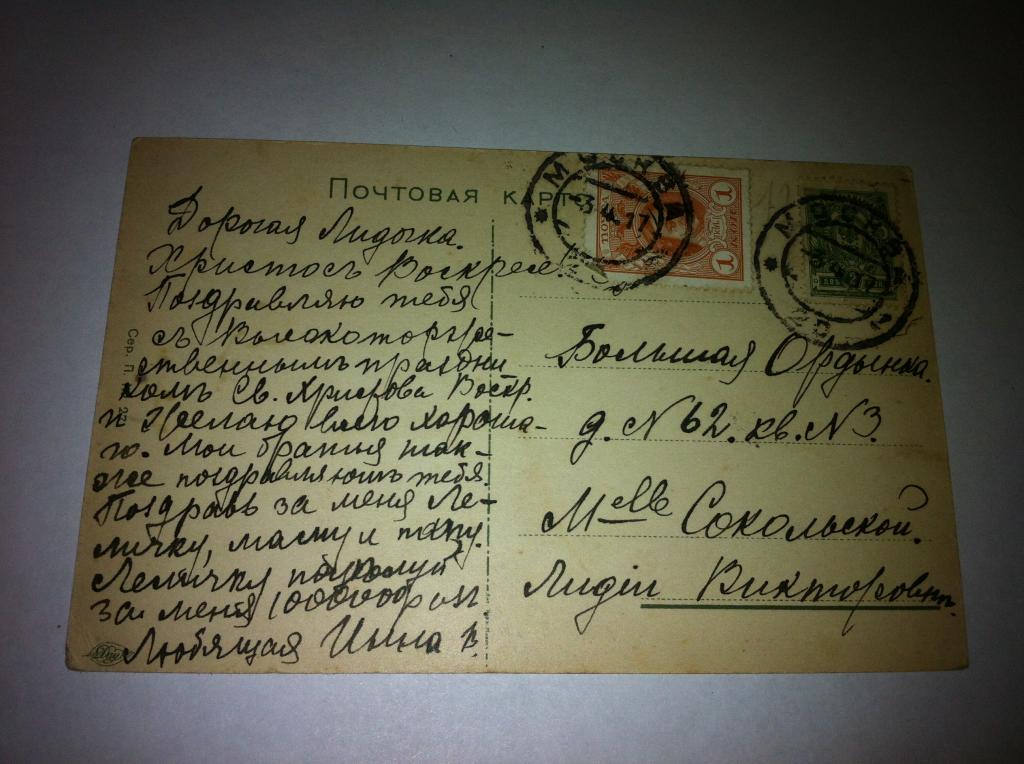 Почтовая карт
Дорогая Лидочка.
Христосъ Воскресе!
Поздравляю тебя
съ Высокоторже-
ственнымъ праздни
комъ Св. Христова Воскр.
и Желаю всего хороша-
го. Мои братья так-
же поздравляютъ тебя.
Поздравь за меня Ле-
личку, маму и папу.
Леличку поцѣлуй
за меня 1000000 разъ
Любящая Инна В.
Сер. П.
МОСКВА
1 КОП.
МОСКВА
Большая Ордынка.
д. N 62. кв. N 3.
Mlle Сокольской.
Лидіи Викторовнѣ.